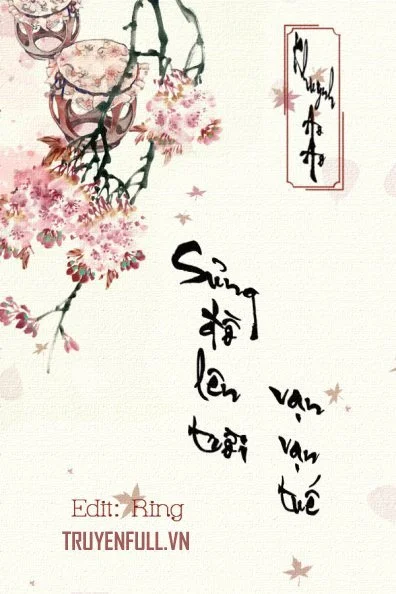 Khuynh
Ao
Ao
Sủng
đồ
lên
trời
vạn
vạn
tuế
Edit: Ring
TRUYENFULL.VN